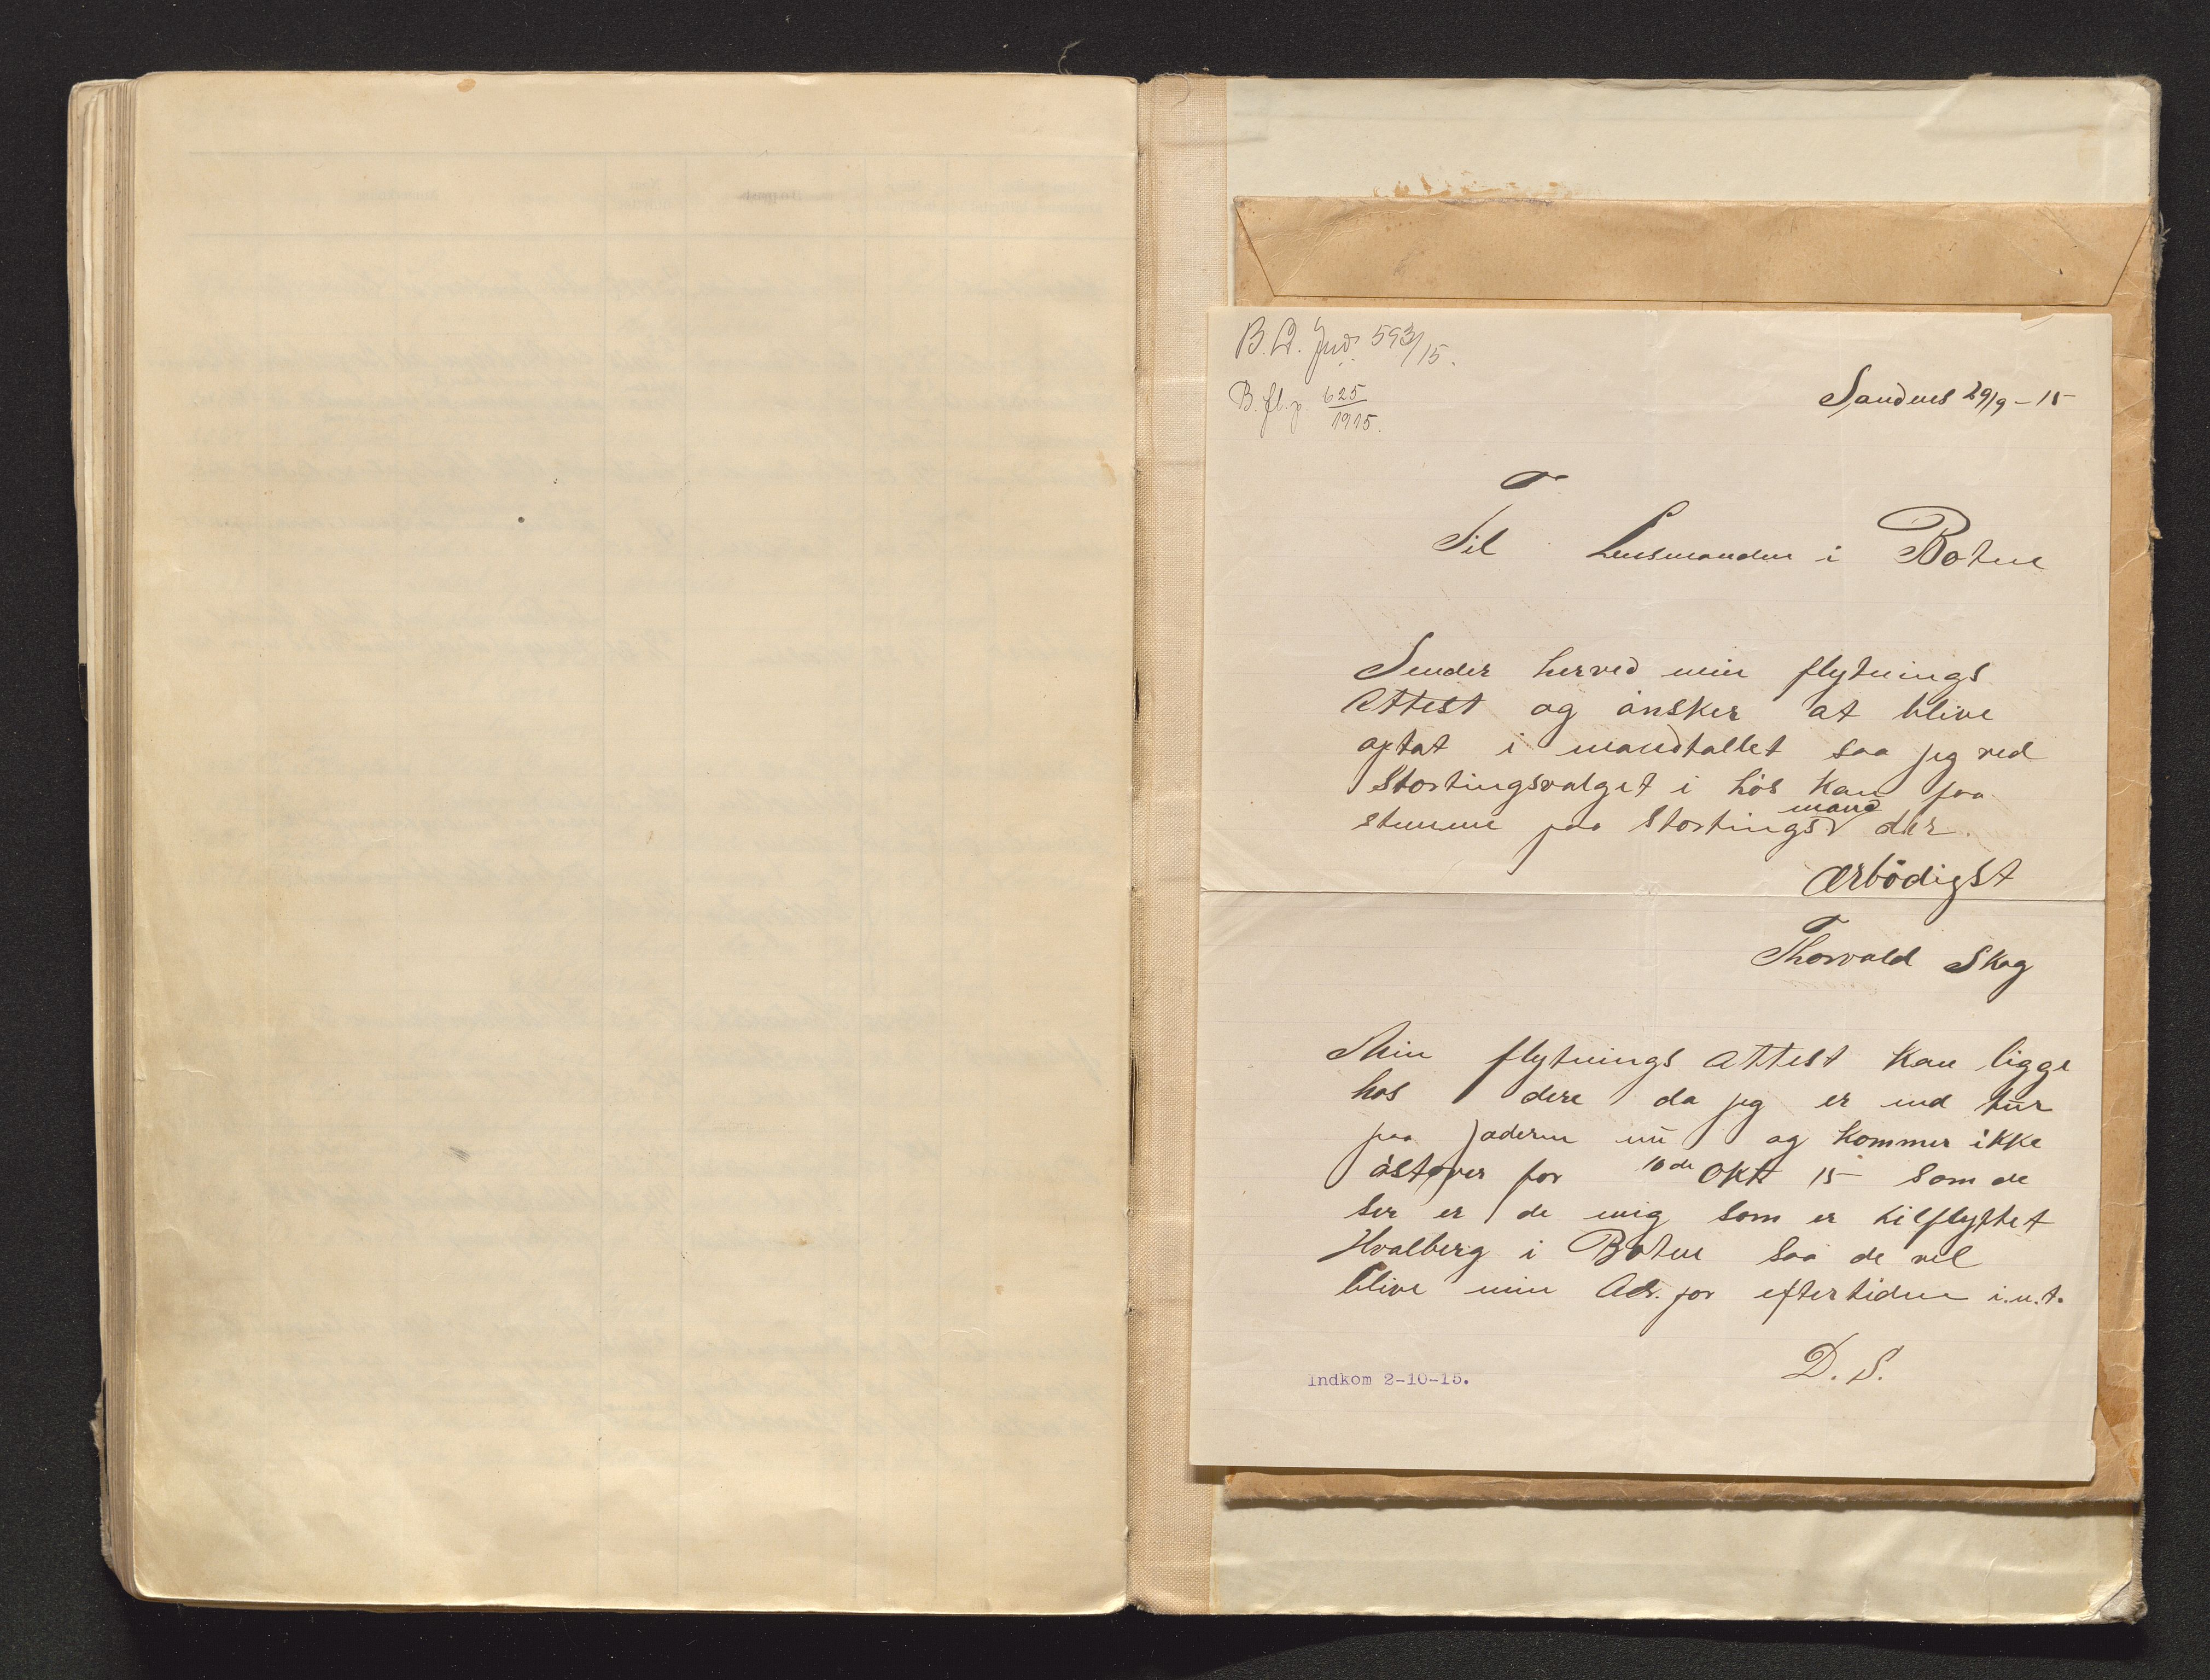 B.L. Jnd. 593/15.
B. fl. p. 625/1915.
Sandnes 29/9-15
Til Lensmanden i Botne
Sender herved min flytnings
Attest og ønsker at blive
optat i mandtallet saa jeg ved
Stortingsvalget i høs kan faa
stemme paa Stortingsmand der.
Ærbödigst
Thorvald Skog
Min flytnings Attest kan ligge
hos dere da jeg er ud tür
paa Jæderen nü og kommer ikke
østover før 10de Okt 15 som de
ser er de mig som er tilflyttet
Hvalberg i Botne saa de vel
blive min Adr. for eftertiden i.u.t.
D.S.
Indkom 2-10-15.